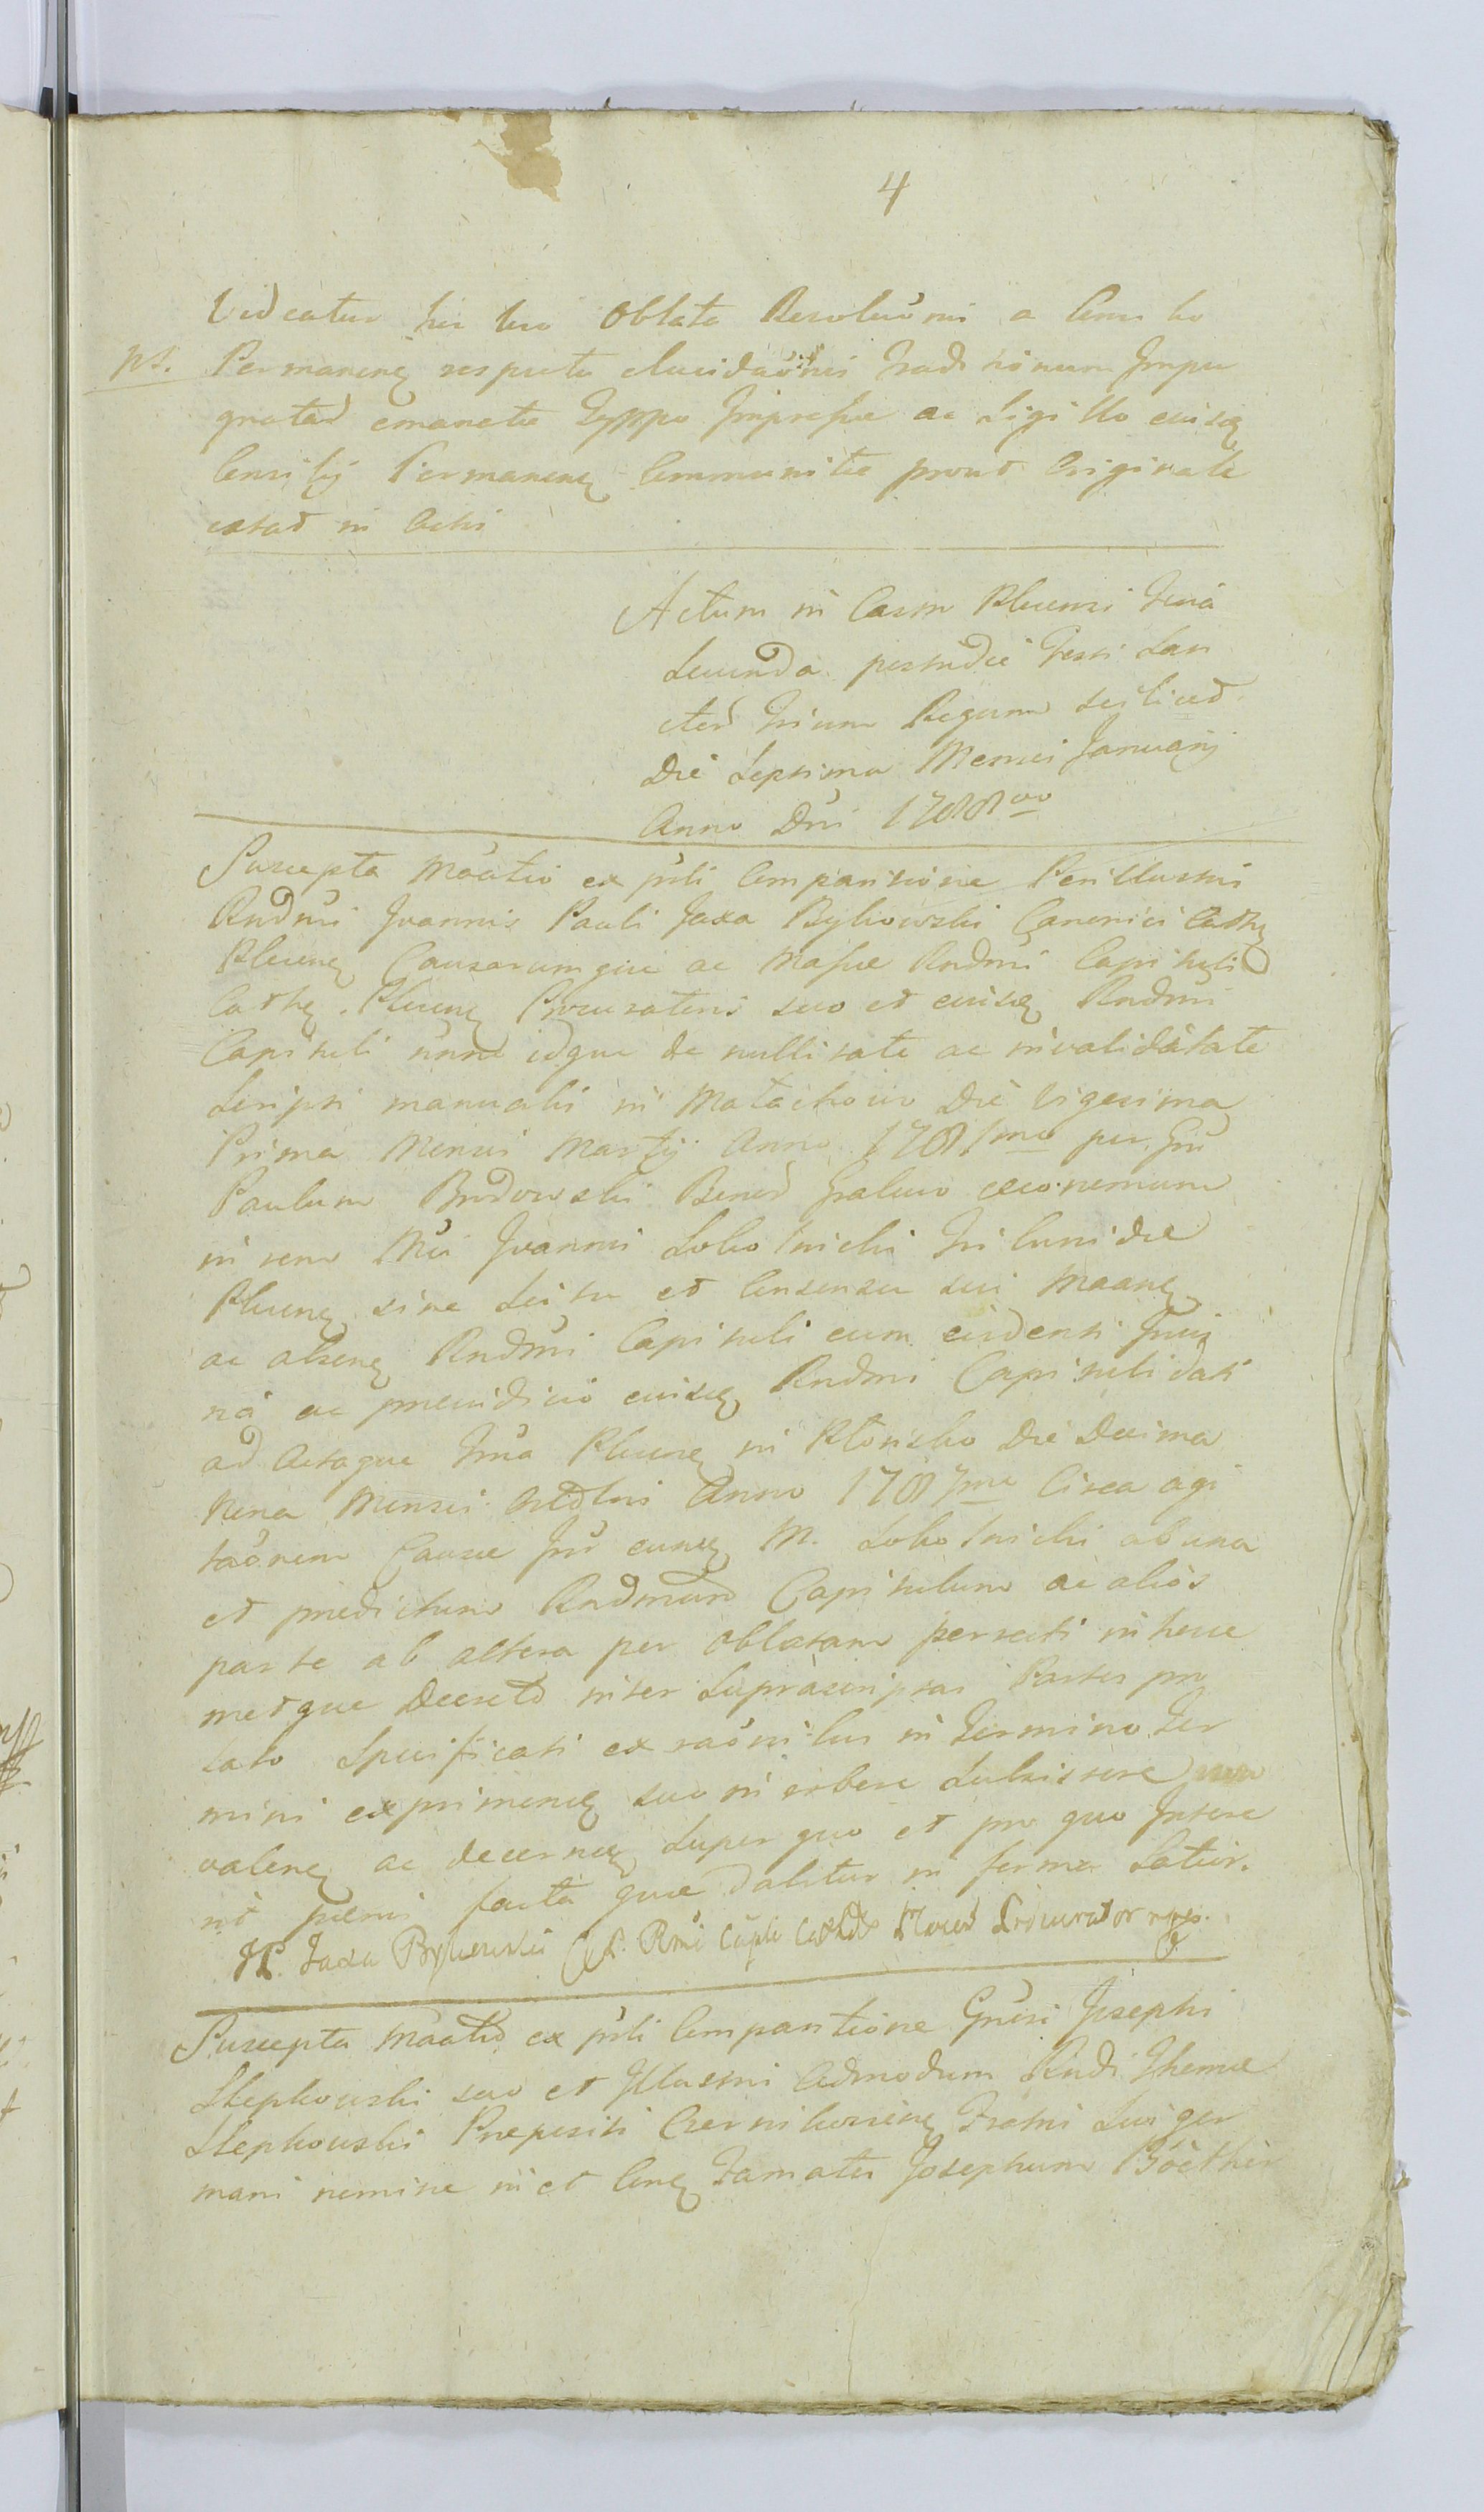 4
Videatur hic loco Oblata Resolutionis a Consilio
NB. Permanenĕ respectu elucidaõnis Traditionum Impu
gnatar emanata Typpo Impressa ac Sigillo eiusdĕ
Consilij Permanenĕ Communita prout Originale
extat in Actis
Actum in Castro Plocensi Feria
Secunda postridie Festi San
ctor Trium Regum scilicet
Die Septima Mensis Januarij
Anno Dni 1788vo
Suscepta Maãtio ex psãli Comparitione Perillustris
Rndmi Joannis Pauli Jaxa Bykowski Canonici Cathĕ
Plocenĕ Causarumque ac Massae Rndmi Capituli
Cathĕ. Plocenĕ Procuratoris suo et eiusdĕ Rndmi
Capituli nõne idque de nullitate ac invalidatate
Scripti manualis in Matachowo Die Vigesima
Prima Mensis Martij Anno 1781mo per Gũ
Paulum Brodowski Bonor Gralewo oeconomum
in rem Mci Joannis Sokolnicki Tribunidae
Plocenĕ sine Scitu et Consensu sui Maanĕ
ac absenĕ Rndmi Capituli cum evidenti Inju
ria ac praejudicio eiusdĕ Rndmi Capituli dati
ad Actaque Trria Plocenĕ in Płonsko Die Decima
Nona Mensis Octobris Anno 1787mo Circa agi
taõnem Causae Inr eundĕ M. Sokolnicki ab una
et praedictum Rndmum Capitulum ac alios
parte ab altera per Oblatam porrecti in hocce
metque Decreto inter Suprascriptas Partes pro
lato Specificati ex raõnibus in Termino Ter
mini exprimenĕ suo in robore Subsistere non
valenĕ ac decernĕ Super quo et pro quo Intere
nt praemis facta quae dabitur in forma Latior.
JP. Jaxa Bykowski C.P. Rmi Capli Cathdr Plocen Procurator mpp.
Suscepta Maãtio ex psãli Comparitione Gnrosi Josephi
Stepkowski suo et Illustris Admodum Rndi Thomae
Stepkowski Praepositi Czernikoviensĕ Fratris Sui ger
mani nomine in et Conĕ Famatus Josephum Böether